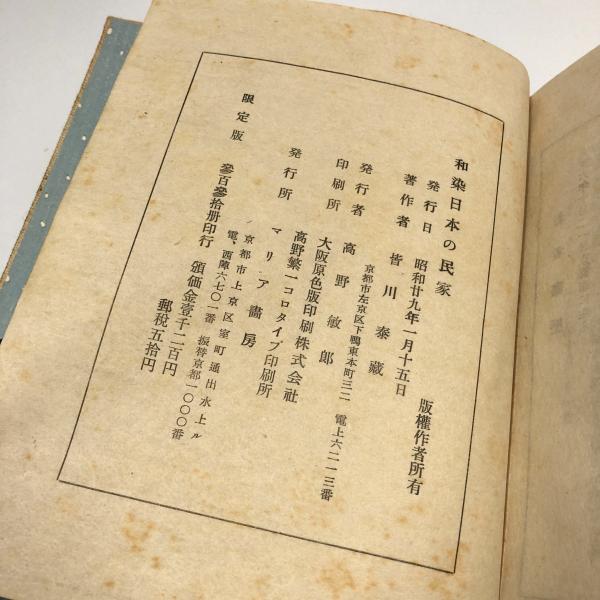 和染日本の民家
発行日 昭和廿九年一月十五日 版權作者所有
著作者 皆川泰藏
京都市左京区下鴨東本町三二 電上六二一三番
発行者 高野敏郎
印刷所 大阪原色版印刷株式会社
高野繁一コロタイプ印刷所
発行所 マリア畵房
京都市上京区室町通出水上ル
電、西陣六七〇一番 振替京都一〇〇〇番
限定版 參百參拾册印行 頒価金壹千二百円
郵税五拾円